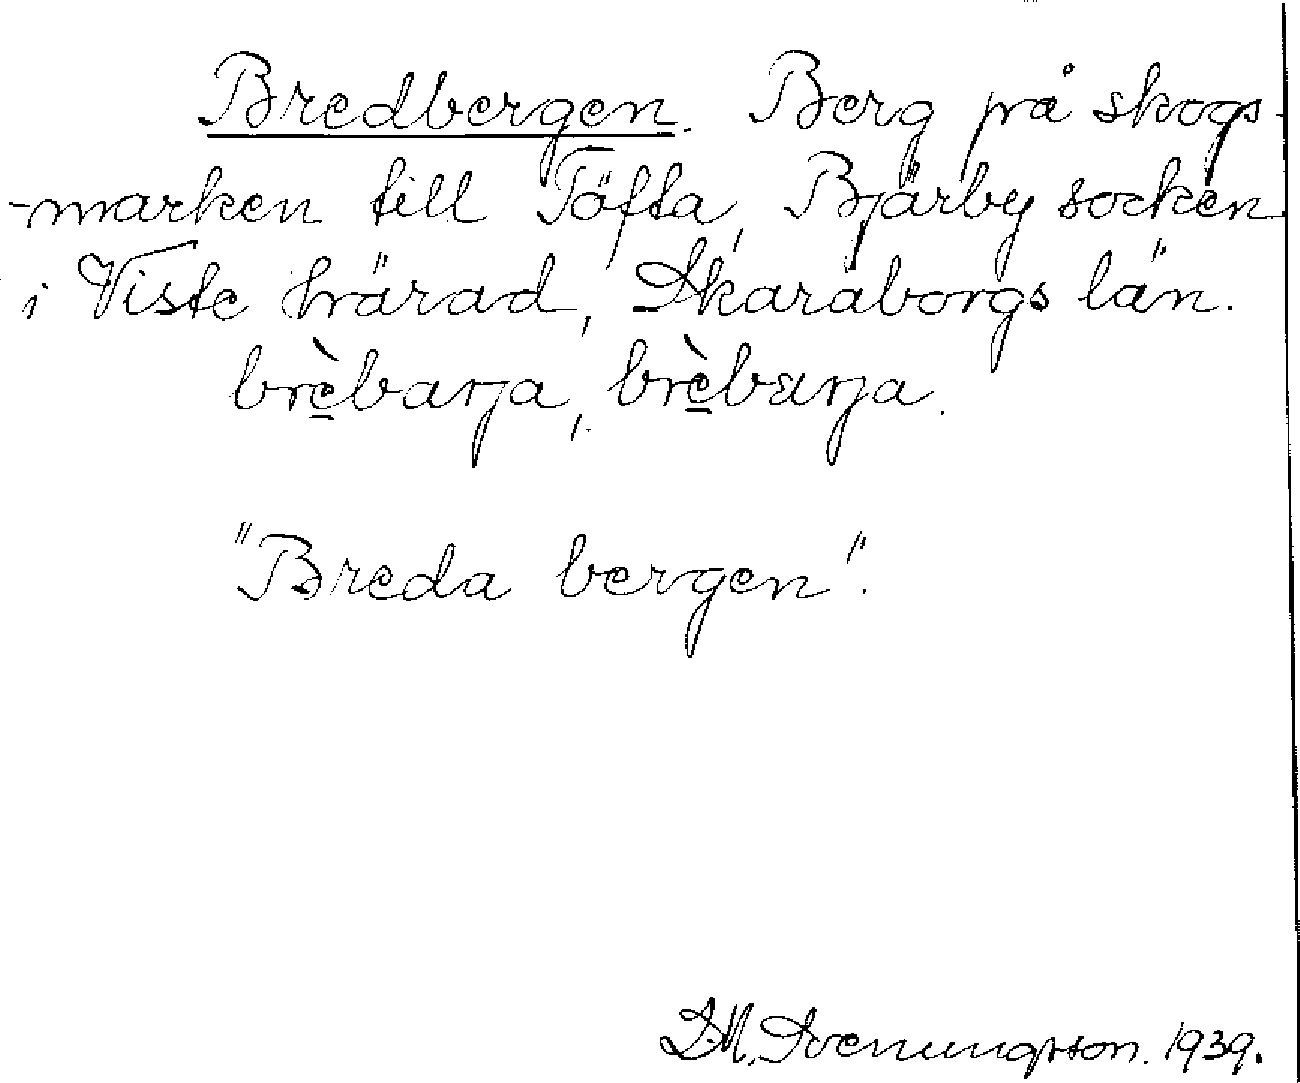 Bredbergen. Berg på skogs-
-marken till Töfta, Bjärby socken
i Viste härad, Skaraborgs län.
brè̱barja, brè̱bærja.
"Breda bergen".
S.M. Svenungsson. 1939.